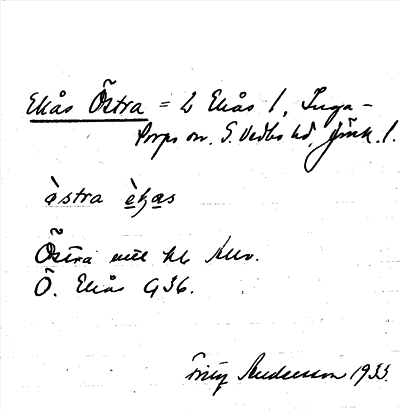 Ekås Östra = L Ekås 1, Inga-
torps sn. S. Vedbo hd, Jönk. l.
àstra èkas
Östra mtl hl
Ö. Ekås G36.
Fritz Andersson 1933.